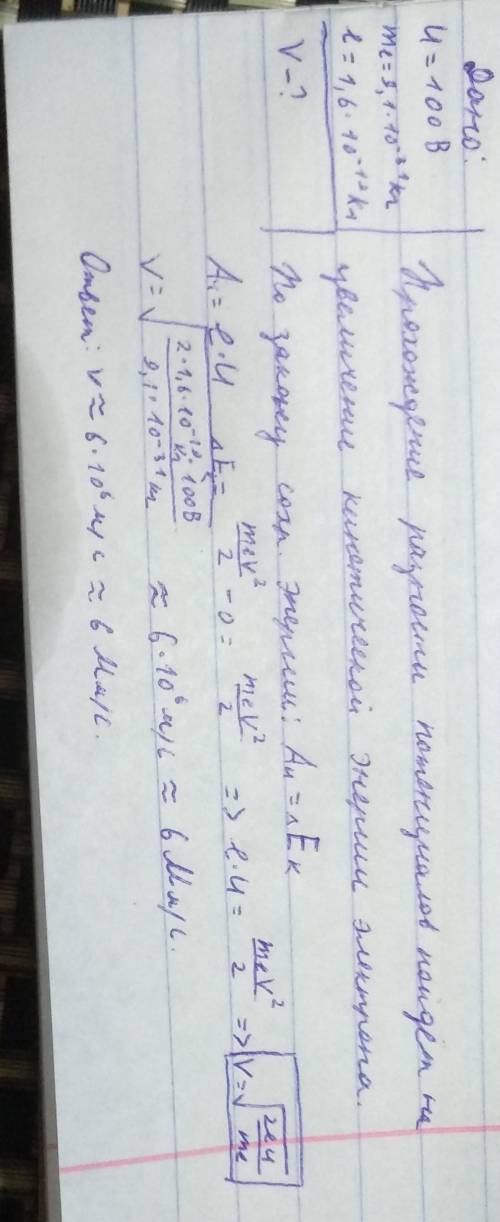 Дано:
U = 100 В
mₑ = 9,1·10⁻³¹ кг
e = 1,6·10⁻¹⁹ Кл
V - ?
Прохождение разности потенциалов пойдёт на
увеличение кинетической энергии электрона.
По закону сохр. энергии: Aᵤ = ΔEк
Aᵤ = e·U ΔEк = mₑv²/2 - 0 = mₑv²/2 => e·U = mₑv²/2 => V = √(2eU/mₑ)
V = √(2·1,6·10⁻¹⁹ Кл·100В / 9,1·10⁻³¹ кг) ≈ 6·10⁶ м/с ≈ 6 Мм/с.
Ответ: V ≈ 6·10⁶ м/с ≈ 6 Мм/с.